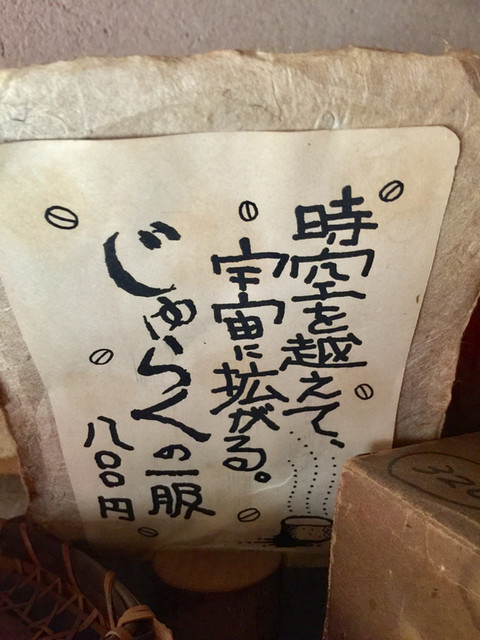 時空を越えて、
宇宙に拡がる。
じゅらくの一服
八〇〇円